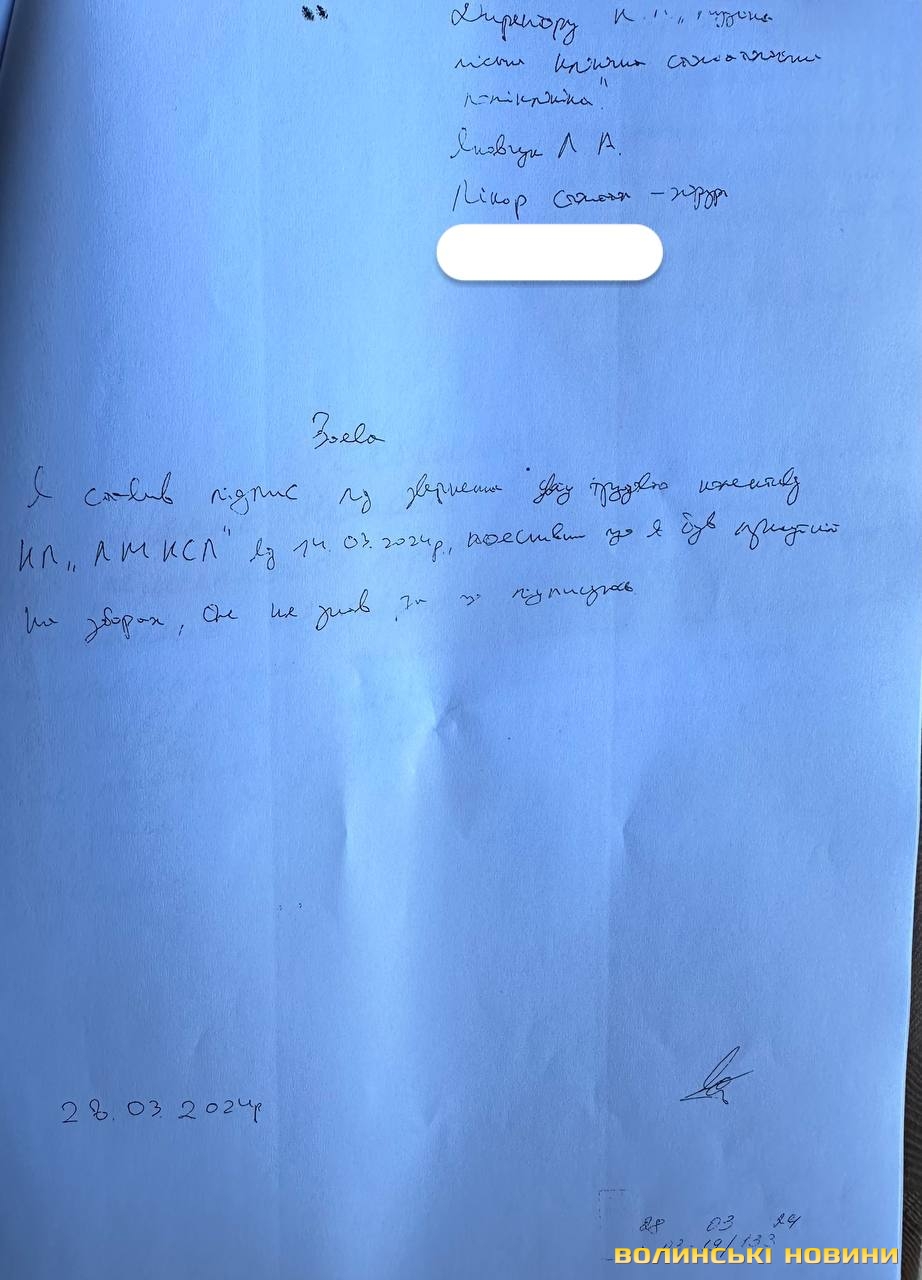 Директору К
клінічна
поліклініка"
Яковчук Л А.
Лікар стомат - хірург
Заява
Я ставив підпис під звернення трудового колективу
КП „ЛМКСП" від 14.03.2024р., що я був присутній
на зборах, але не знав за що підписуюсь
28.03.2024р
28 03 24
19/133
ВОЛИНСЬКІ НОВИНИ